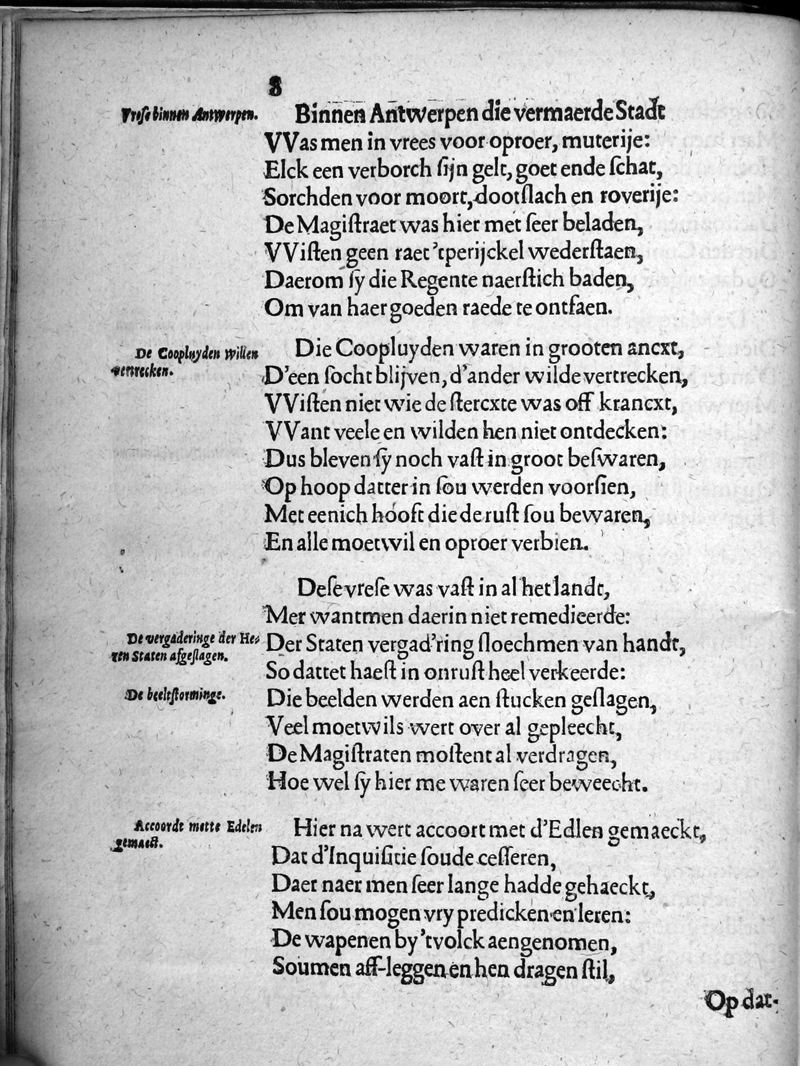 8
Vrese binnen Antwerpen.
Binnen Antwerpen die vermaerde Stadt
VVas men in vrees voor oproer, muterije:
Elck een verborch ſijn gelt, goet ende ſchat,
Sorchden voor moort, dootſlach en roverije:
De Magiſtraet was hier met ſeer beladen,
VViſten geen raet 'tperijckel wederſtaen,
Daerom ſy die Regente naerſtich baden,
Om van haer goeden raede te ontfaen.
De Coopluyden willen
vertrecken.
Die Coopluyden waren in grooten ancxt,
D'een ſocht blijven, d'ander wilde vertrecken,
VViſten niet wie de ſtercxte was off krancxt,
VVant veele en wilden hen niet ontdecken:
Dus bleven ſy noch vaſt in groot beſwaren,
Op hoop datter in ſou werden voorſien,
Met eenich hooft die de ruſt ſou bewaren,
En alle moetwil en oproer verbien.
Deſe vreſe was vaſt in al het landt,
Mer wantmen daerin niet remedieerde:
De vergaderinge der He-
ren Staten afgeſlagen.
Der Staten vergad'ring ſloechmen van handt,
So dattet haeſt in onruſt heel verkeerde:
De beeltſtorminge.
Die beelden werden aen ſtucken geſlagen,
Veel moetwils wert over al gepleecht,
De Magiſtraten moſtent al verdragen,
Hoe wel ſy hier me waren ſeer beweecht.
Accoordt mette Edelen
gemaect.
Hier na wert accoort met d'Edlen gemaeckt,
Dat d'Inquiſitie ſoude ceſſeren,
Daer naer men ſeer lange hadde gehaeckt,
Men ſou mogen vry predicken en leren:
De wapenen by 'tvolck aengenomen,
Soumen aff-leggen en hen dragen ſtil,
Op dat-